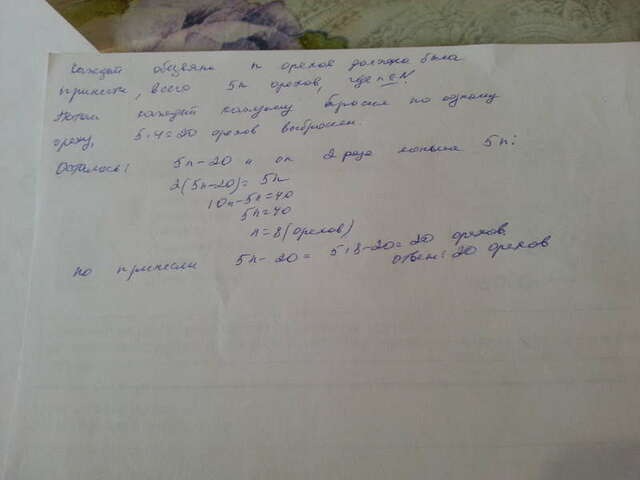 Каждая обезьяна n орехов должна была
принести, всего 5n орехов, где n ∈ N
Потом каждая каждому бросила по одному
ореху, 5·4=20 орехов выбросили.
Осталось: 5n-20 и он 2 раза меньше 5n:
2(5n-20)=5n
10n-5n=40
5n=40
n=8 (орехов)
но принесли 5n-20= 5·8-20=20 орехов
ответ: 20 орехов